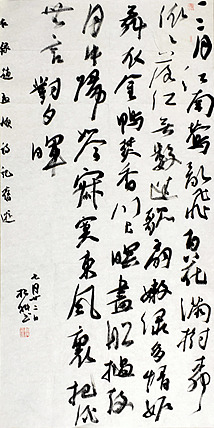 三月江南鶯亂飛百花滿樹柳
依々落紅無數迷歌扇嫩綠多情妒
舞衣金鴨焚香川上暝畫船撾鼓
月中歸如今寂寞東風裏把酒
無言對夕暉
詩記舊遊
七月廿二日